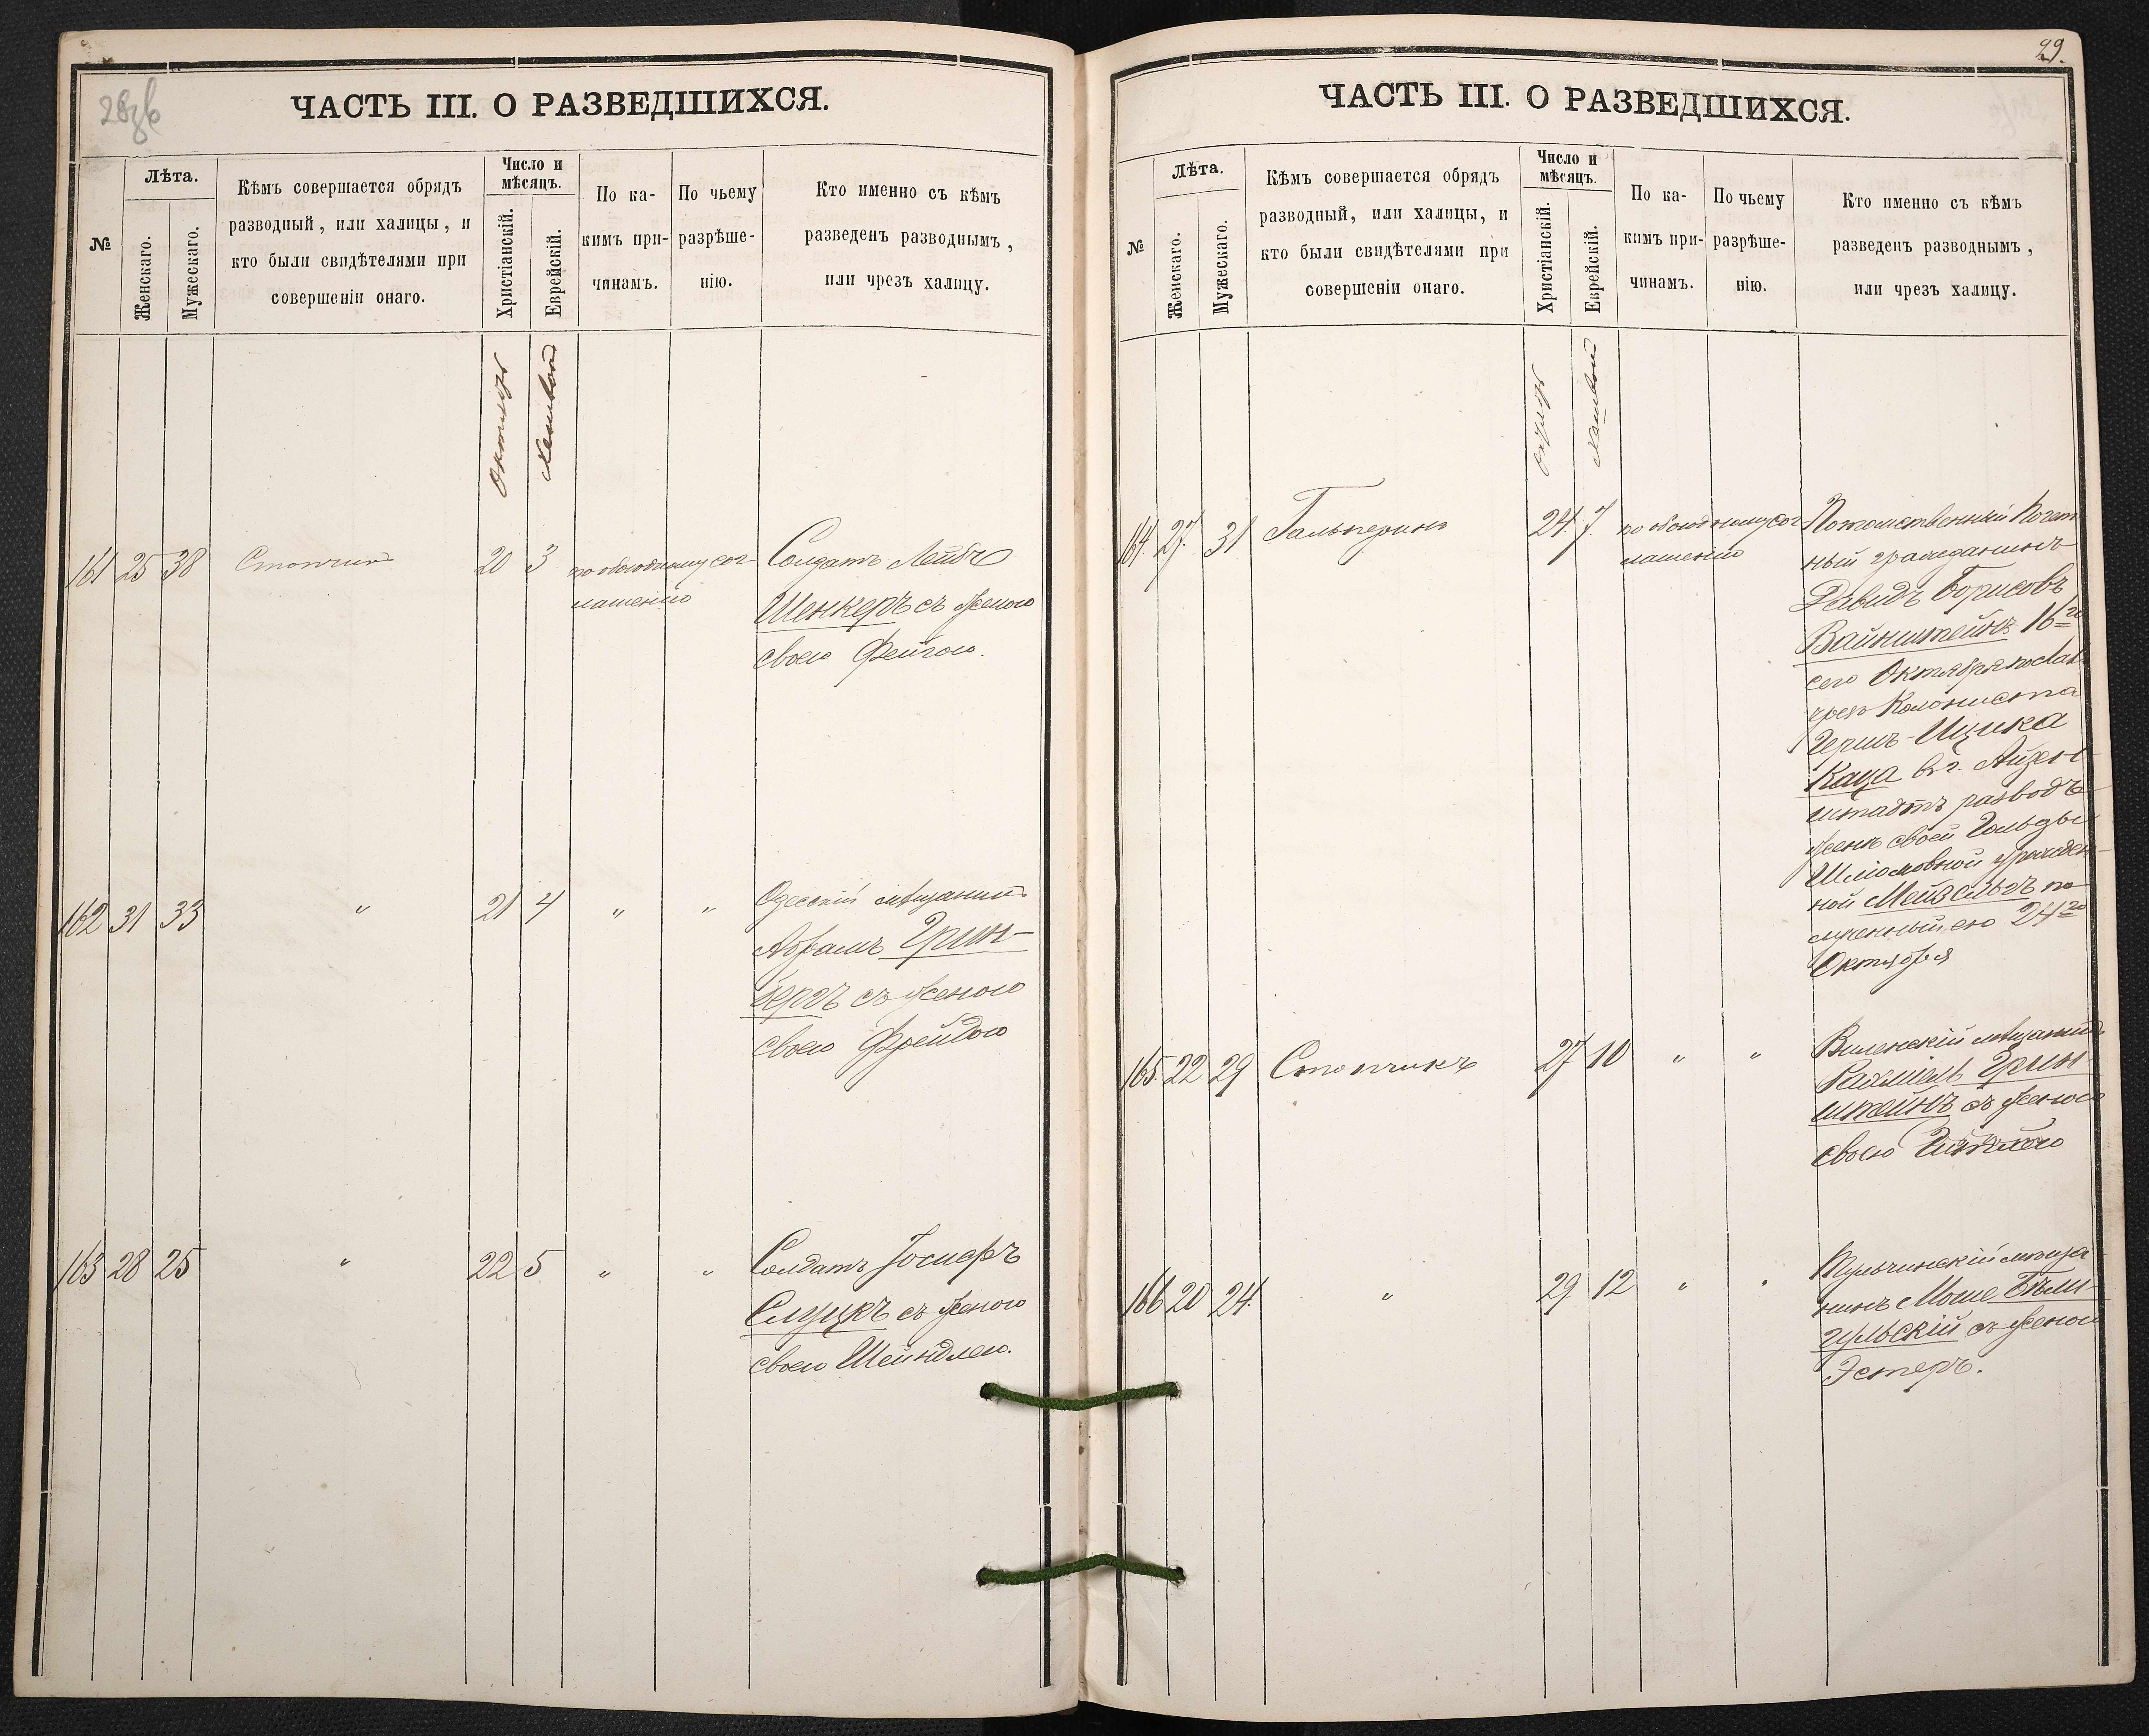 28об
ЧАСТЬ III. О РАЗВЕДШИХСЯ.
№
Лѣта.
Женскаго.
Мужескаго.
Кѣмъ совершается обрядъ
разводный, или халицы, и
кто были свидѣтелями при
совершеніи онаго.
Число и
мѣсяцъ.
Христіанскій.
Еврейскій.
По ка-
кимъ при-
чинамъ.
По чьему
разрѣше-
нію.
Кто именно съ кѣмъ
разведенъ разводнымъ,
или чрезъ халицу.
Октябрь
Хешвон
161 25 38 Стопчик 20 3 по обоюдному сог- Солдатъ Лейбъ
лашенію Шенкеръ съ женою
своею Фейгою.
162 31 33 " 21 4 " " Одесский мѣщанинъ
Абрамъ Грин-
бергъ съ женою
своею Фрейдою
163 28 25 " 22 5 " " Солдатъ Іосифъ
Слуцкъ съ женою
своею Шейндлею.
29.
ЧАСТЬ III. О РАЗВЕДШИХСЯ.
№
Лѣта.
Женскаго.
Мужескаго.
Кѣмъ совершается обрядъ
разводный, или халицы, и
кто были свидѣтелями при
совершеніи онаго.
Число и
мѣсяцъ.
Христіанскій.
Еврейскій.
По ка-
кимъ при-
чинамъ.
По чьему
разрѣше-
нію.
Кто именно съ кѣмъ
разведенъ разводнымъ,
или чрезъ халицу.
Хешвон
164 27. 31 Гальперинъ 24. 7. по обоюдному сог- Потомственный Почет-
лашенію ный гражданинъ
Давидъ Борисовъ
Вайнштейнъ 16го
сего Октября послал
чрез Колониста
Герш-Ицика
Каца в г. Айзен-
штадтъ разводъ
женѣ своей Гольды
Шліомовной урожден-
ной Мейзельсъ по-
лученный ею 24го
Октября
165. 22 29 Стопчикъ 27 10 " " Виленскій мѣщанинъ
Рахміель Грин-
штейнъ съ женою
своею
166 20 24. " 29 12 " " Тульчинскій мѣща-
нинъ Моше Бѣли-
гульскій съ женою
Эстеръ.